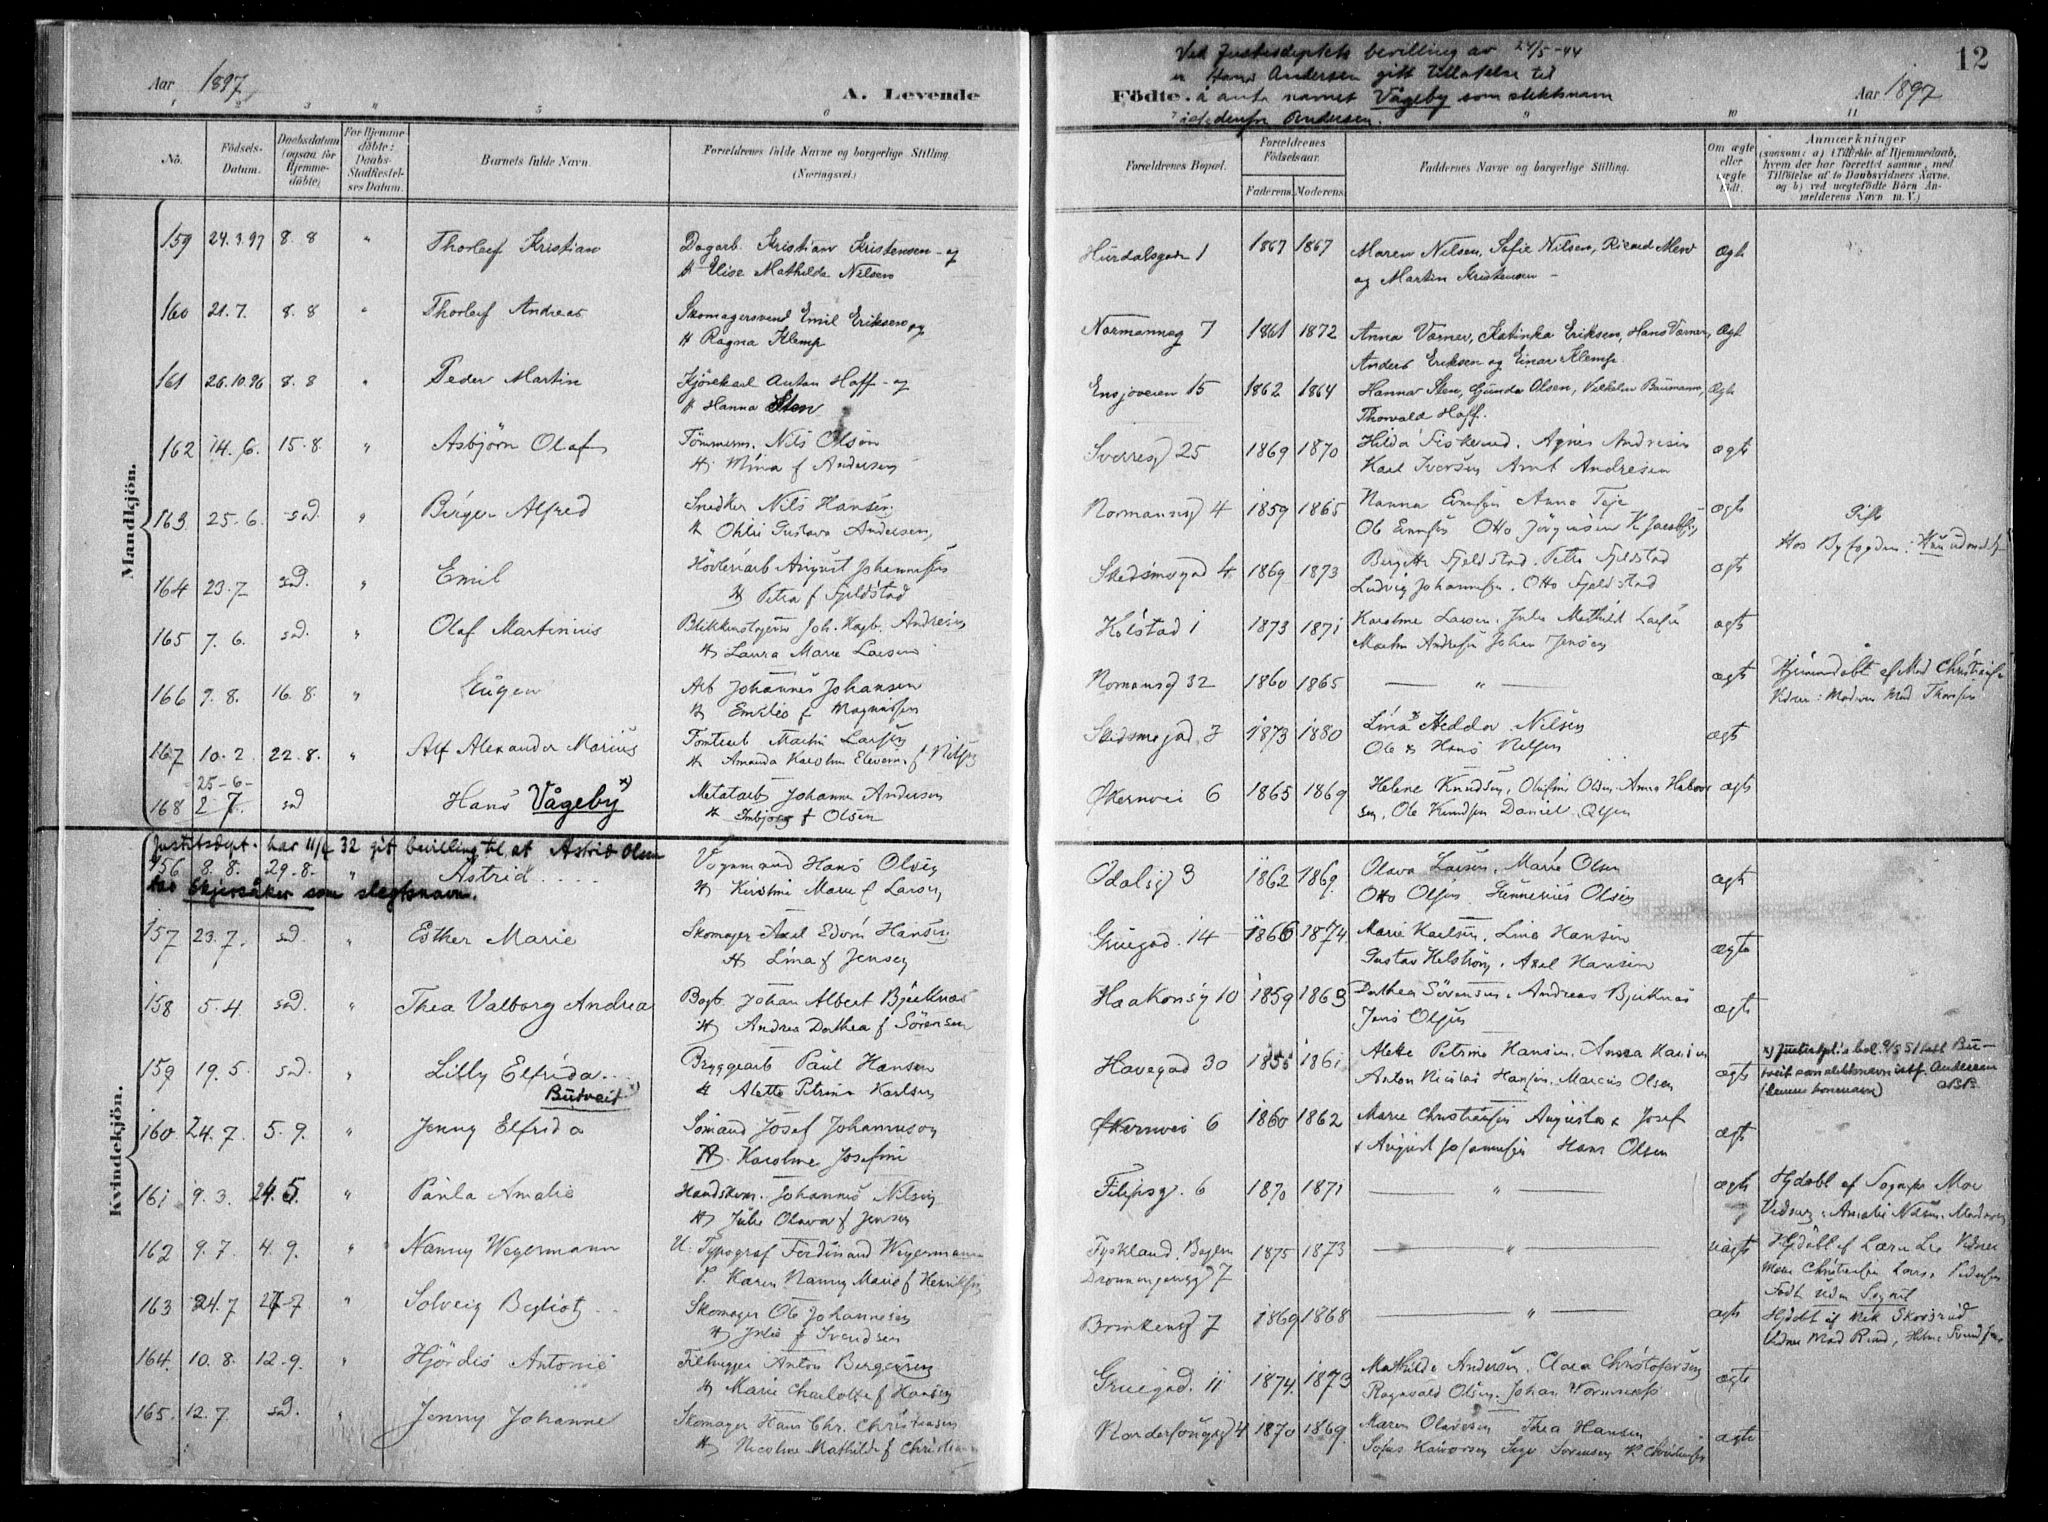 Aar 1897
A. Levende
Födte.
Ved Justisdeptets bevilling av 24/5-44
er Hans Andersen gitt tillatelse til
å anta navnet Vågeby som slektsnavn
istedenfor Andersen.
Aar 1897
12
No.
Födsels-Datum.
Daabsdatum (ogsaa for Hjemmedöbte)
For Hjemmedöbte: Daabs-Stadfæstelses Datum.
Barnets fulde Navn.
Forældrenes fulde Navne og borgerlige Stilling. (Næringsvei.)
Forældrenes Bopæl.
Forældrenes Födselsaar.
Faderens. Moderens.
Faddernes Navne og borgerlige Stilling.
Om ægte eller uægte födt.
Anmærkninger
(saasom: a) i Tilfælde af Hjemmedaab, hvem der har forrettet samme, med Tilföielse af to Daabsvidners Navne, og b) ved uægtefödte Börn Anmelderens Navn m. V.)
Mandkjön.
159 24.3.97 8.8 " Thorleif Kristian Dagarb. Kristian Kristensen og Hurdalsgade 1 1867 1867 Maren Nilsen, Sofie Nilsen, Ægte
H Elise Mathilde Nilsen og Martin Kristensen
160 21.7. 8.8 " Thorleif Andreas Skomagersvend Emil Eriksen og Normannsg 7 1861 1872 Anna Værner, Katinka Eriksen, Hans Værner, Ægt
H Ragna Klemp Anders Eriksen og Einar Klemp.
161 26.10.96 8.8 " Peder Martin Kjørekarl Anton Hoff og Ensjøveien 15 1862 1864 Hanna Sten, Gunda Olsen, Vilhelm Baumann, Ægte
H Hanna Sten Thorvald Hoff.
162 14.6. 15.8. " Asbjörn Olaf Tömmerm. Nils Olson Sverresg 25 1869 1870 Hilda Fiskerud. Agnes Andresen ægte
H. Mina f Andersen Karl Iversen Arnt Andresen
163 25.6. sad. " Birger Alfred Snedker Nils Hansen Normannsg 4 1859 1865 Nanna Evensen Anna Teje ægte
H. Gustava Andersen Ole Evensen Otto Jörgensen
164 23.7 sad. " Emil August Johannesen Skedsmogad 4 1869 1873 Bergitte Fjeldstad. Petra Fjeldstad ægte
H Petra f Fjeldstad Ludvig Johannesen. Otto Fjeldstad
165 7.6. sad. " Olaf Martinius Joh. Hagb. Andresen Kolstad 1 1873 1871 Karoline Larsen. Julie Mathild Larsen ægte
H Laura Marie Larsen Martin Andresen Johan Jensen
166 9.8. 16.8. " Eugen Arb Johannes Johansen Normansg 32 1860 1865 — " — ægte Hjemmedöbt af Mad Christiansen
H. Emilie f Magnussen Vidner: Moderen Mad Thorsen
167 10.2. 22.8. " Alf Alexander Marius Tomtearb Martin Larsen Skedsmogad. 3 1873 1880 Lina Hedda Nilsen ægte
H. Amanda Karoline f. Nilsen Ole & Hans Nilsen
25-6-
168 2 7. sad " Hans Vågeby x) Metalarb Johannes Andersen Økernvei 6 1865 1869 Helene Knudsen, Olufine Olsen. Anna ægte
H. Inbjorg f Olsen Ole Knudsen Daniel Olsen
Kvindekjön.
Justitsdept. har 11/2 32 git bevilling til at Astrid Olsen
156 8.8. 29.8. " Astrid Vognmand Hans Olsen Odalsg 3 1862 1869. Olava Larsen. Marie Olsen ægte
tar Skjersåker som slegtsnavn.
H. Kirstine Marie f Larsen Otto Olsen. Gunnerius Olsen
157 23.7. sad " Esther Marie Skomager Axel Edvin Hansen Gruegad. 14 1866 1874. Marie Karlsen. Lina Hansen ægte
H Lina f Jensen Gustav Helström. Axel Hansen
158 5.4 sad. " Thea Valborg Andrea Bogb. Johan Albert Bjerknæs Haakonsg 10 1859 1863 Dorthea Sörensen. Andreas Bjerknæs ægte
H. Andrea Dorthea f Sörensen Jens Olsen
159 19.5. sad. " Lilly Elfrida Bryggearb Paul Hansen Havegad 30 1855 1861 Alette Petrine Hansen. Anna Hansen ægte
Butveit x) H Alette Petrine Karlsen Anton Nicolai Hansen. Marius Olsen
160 24.7. 5.9. " Jenny Elfrida Sömand Josef Johannson Økernvei 6 1860 1862 Marie Christiansen Augusta & Josef ægte
H. Karoline Josefine & August Johannesen Hans Olsen
161 9.3. 24.5. " Paula Amalie Handskem. Johannes Nilsen Filipsg. 6 1870 1871 — " — ægte Hjdöbt af Sogneps Moe
H Julie Olava f Jensen Vidner: Amalie Nilsen. Moderen
162 9.7. 4.9. " Nanny Wegermann U. Typograf Ferdinand Wegermann Tyskland. 1875 1873 — " — uægte Hjdöbt af Lærer Lie Vidner
P. Karen Nanny Marie f Henriksen Dronningensg 7 Marie Christiansen Pedersen
Födt uden Sognet
163 24.7 27-7 " Solveig Bergliot Skomager Ole Johannesen Brinkensg 7 1869 1868 — " — ægte Hjdöbt af
H. Julie f Svendsen Vidner Mad Rund,
164. 10.8. 12.9. " Hjördis Antonie Filhugger Anton Berggren Gruegad. 11 1874. 1873 Mathilde Andersen. Clara Christofersen ægte
H Marie Charlotte f Hansen Ragnvald Olsen. Johan
165. 12.7. sad. " Jenny Johanne Skomager Hans Chr. Christiansen Norderhougsg 4 1870 1869. Maren Olavesen Thea Hansen ægte
H. Nicoline Mathilde f Christian Sofus Inge Sorensen